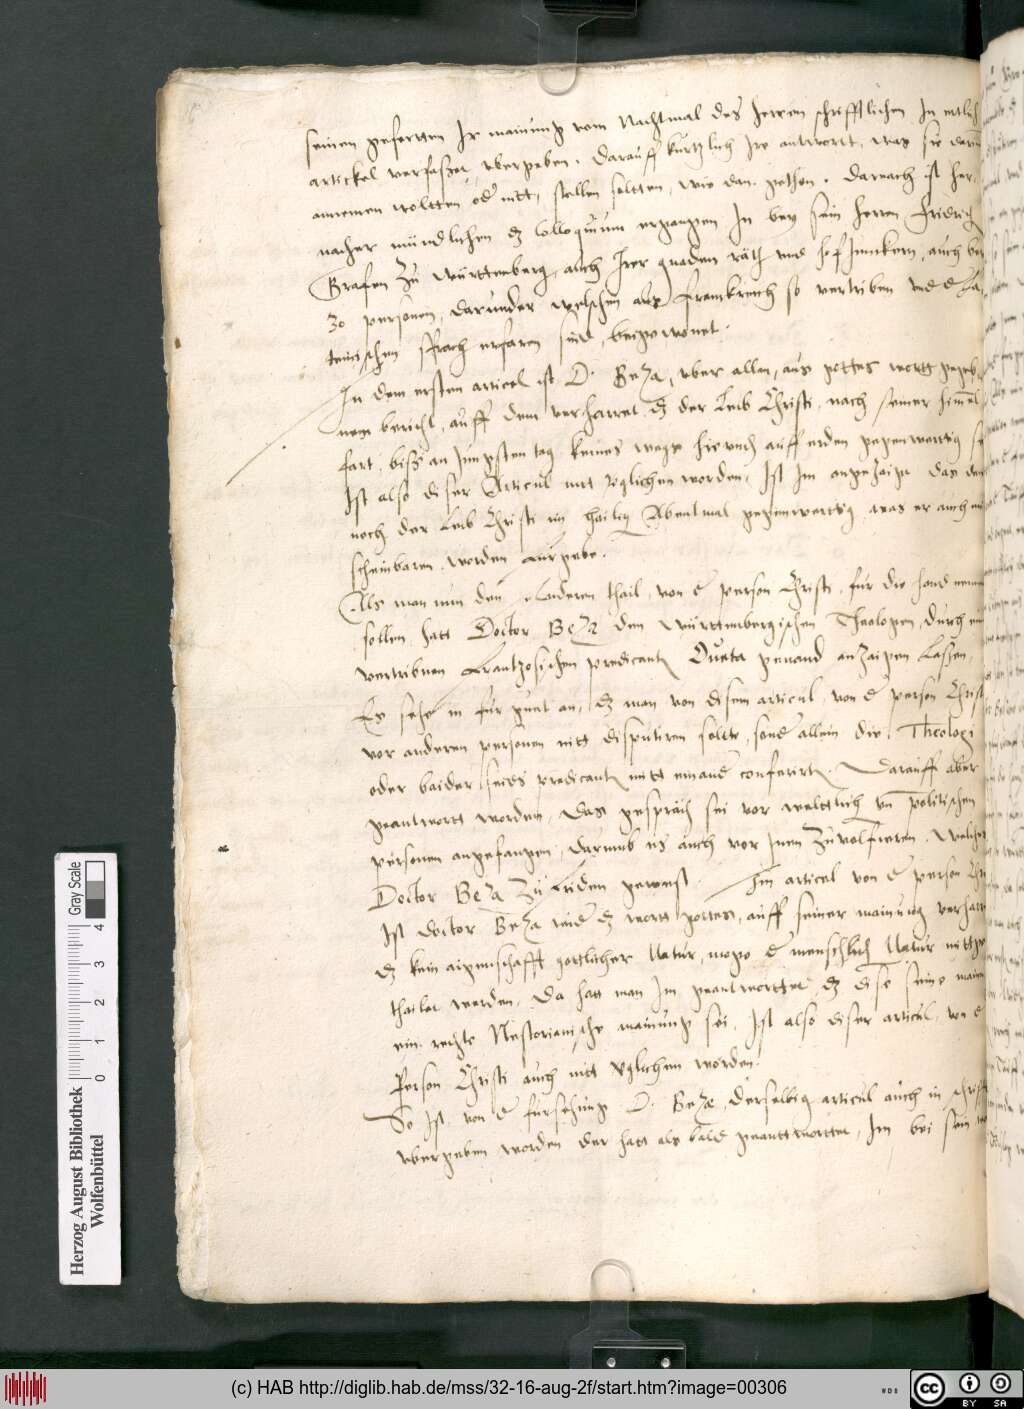 seinen geferten Ir mainung vom Nachtmal des herren schrifftlichen In etlich
artickel verfasset vbergeben. Darauff kurtzlich Ire antwort, was sie darin
annemen woltten oder nitt, stellen soltten, wie dan gethon. Darnach ist her
nacher mündlichen dz Colloquium ergangen In bey sein herren Fridrich
Grafen zu Württemberg, auch Irer gnaden räth vnd hof Junckern, auch bei
30 personen, darunder welschen aus Franckreich so vertriben vnd der La
teinischen sprach erfaren sind, beigewonet.
In dem ersten articel ist D. Beza, vber allen, aus gottes wortt gegeb
nem bericht, auff dem verharret dz der Leib Christi, nach seiner himmel
fart, biss an Jungsten tag keines wegs hierunden auff erden gegenwertig sey
Ist also diser Articul nit verglichen worden, Ist Im angezaigt das den
noch der Leib Christi im hailig Abentmal gegenwertig, was er auch
scheinbaren worden
Als man nun den Anderen thail, von der person Christi, für die hand nemen
sollen hatt Doctor Beza den Württembergischen Theologen, durch ein
vertribnen Frantzosischen predicanten genand anzaigen lassen,
Es sehe in für gutt an, dz man von disem articul, von der person Christi
vor anderen personen nitt disputiren soltte, sonder allein die Theologi
oder baider seids predicanten mitt einander conferirten. Darauff aber
geantwortt worden, Das gespräch sei vor welttlich vnd politischen
personen angefangen, darumb es auch vor Inen zuvolfieren. Welches
Doctor Beza zu friden gewesst. Im articel von der person Christi
Ist doctor Beza wider dz wortt gottes, auff seiner mainung verharret
dz kein aigenschafft gottlicher Natur, möge der menschlich Natur mittge
thailet werden, Da hatt man Im geantworttet dz dise seine mainung
ein rechte Nestorianische mainung sei, Ist also diser articul, von der
Person Christi auch nitt verglichen worden.
So Ist von der fürsehung D. Beza, derselbig articul auch in schrifft
vbergeben worden der hatt als bald geanttworttet, Im bei sein
Herzog August Bibliothek
Wolfenbüttel
Gray Scale
0 1 2 3 4
(c) HAB http://diglib.hab.de/mss/32-16-aug-2f/start.htm?image=00306
WDB
cc BY SA